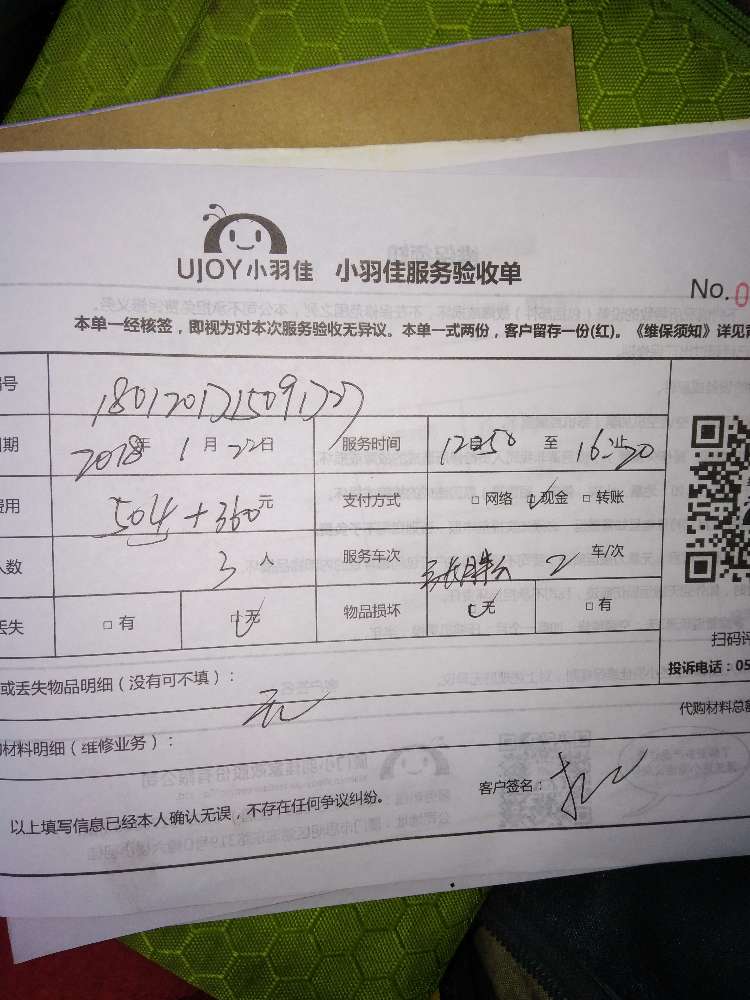 UJOY小羽佳 小羽佳服务验收单
No.0
本单一经核签，即视为对本次服务验收无异议。本单一式两份，客户留存一份(红)。《维保须知》详见
编号
日期 2018年 1 月 22日 服务时间 12时50 至 16 20 止
费用 504+360元 支付方式 □网络 □现金 □转账
人数 3 人 服务车次 2 车/次
丢失 □有 □无 物品损坏 □无 □有
扫码评
或丢失物品明细（没有可不填）： 无
投诉电话：05
材料明细（维修业务）：
代购材料总额
以上填写信息已经本人确认无误，不存在任何争议纠纷。
客户签名：